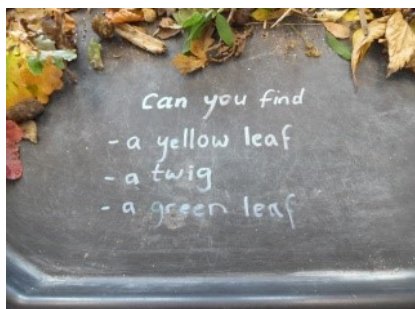 Can you find
- a yellow leaf
- a twig
- a green leaf